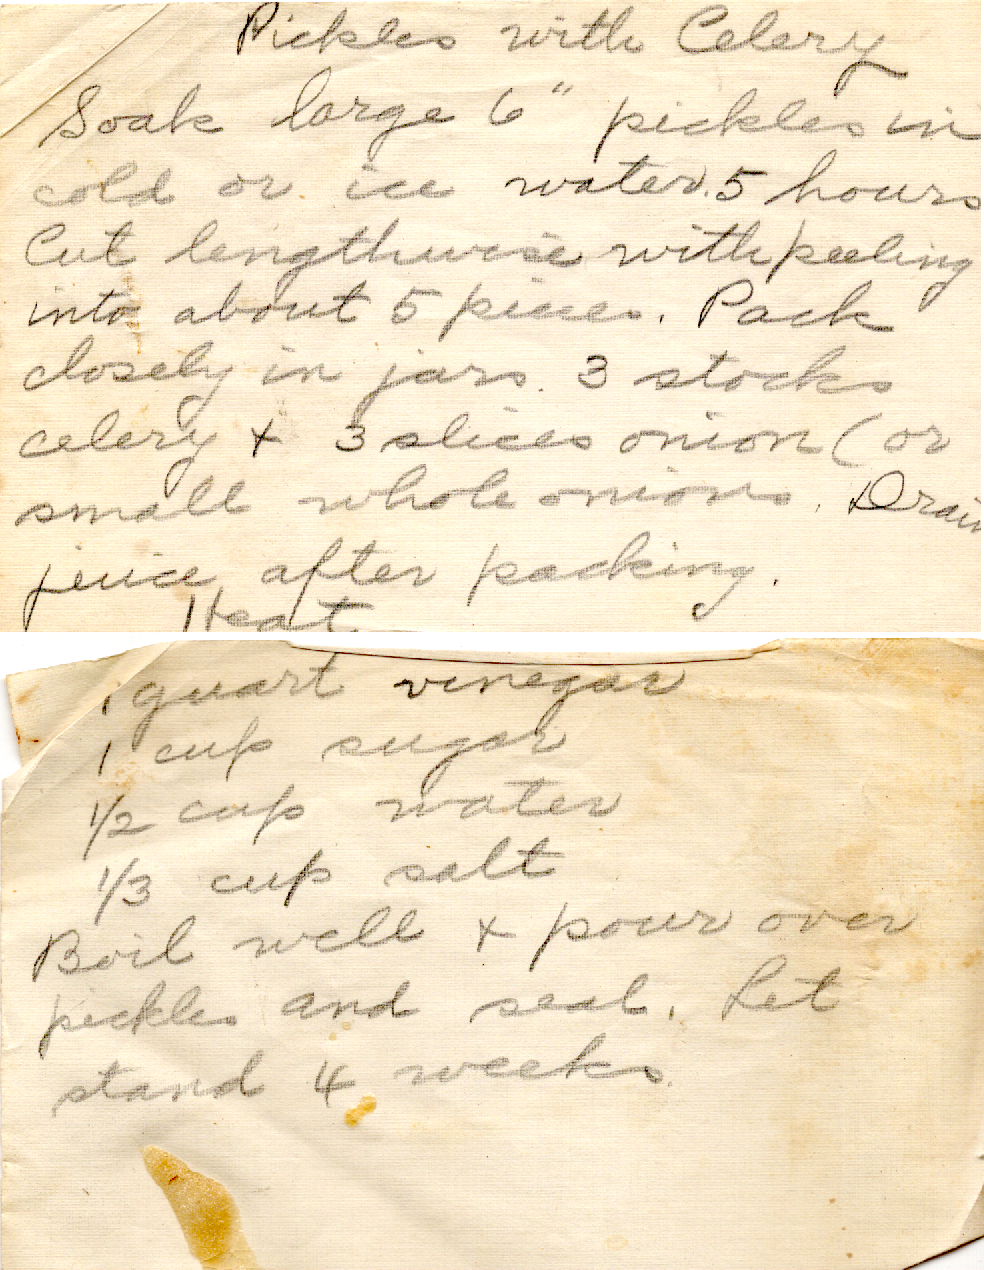 Pickles with Celery
Soak large 6" pickles in
cold or ice water. 5 hours
Cut lengthwise with peeling
into about 5 pieces. Pack
closely in jars. 3 stocks
celery + 3 slices onion (or
small whole onions. Drain
jeuice after packing.
Heat
1 quart vinegar
1 cup sugar
1/2 cup water
1/3 cup salt
Boil well + pour over
pickles and seal. Let
stand 4 weeks.